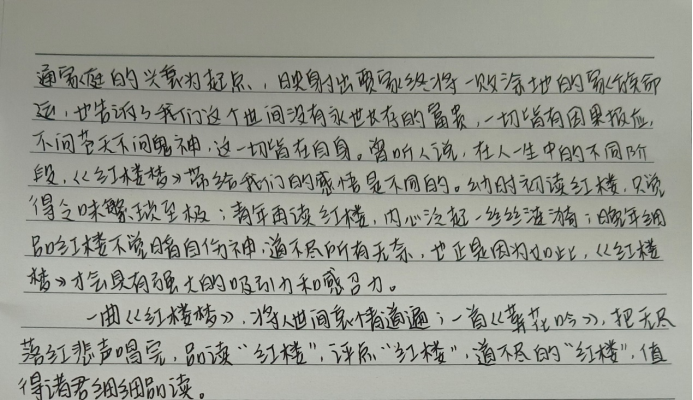 通家庭的兴衰为起点，映射出贾家终将一败涂地的家族命
运，也告诉了我们这个世间没有永世长存的富贵，一切皆有因果报应，
不问苍天不问鬼神，这一切皆在自身。曾听人说，在人一生中的不同阶
段，《红楼梦》带给我们的感悟是不同的。幼时初读红楼，只觉
得乏味繁琐至极；青年再读红楼，内心泛起一丝丝涟漪；晚年细
品红楼不觉暗自伤神，道不尽所有无奈，也正是因为如此，《红楼
梦》才会具有强大的吸引力和感召力。
一曲《红楼梦》，将人世间衷情道遍；一首《葬花吟》，把无尽
落红悲声唱完，品读“红楼”，评点“红楼”，道不尽的“红楼”，值
得诸君细细品读。